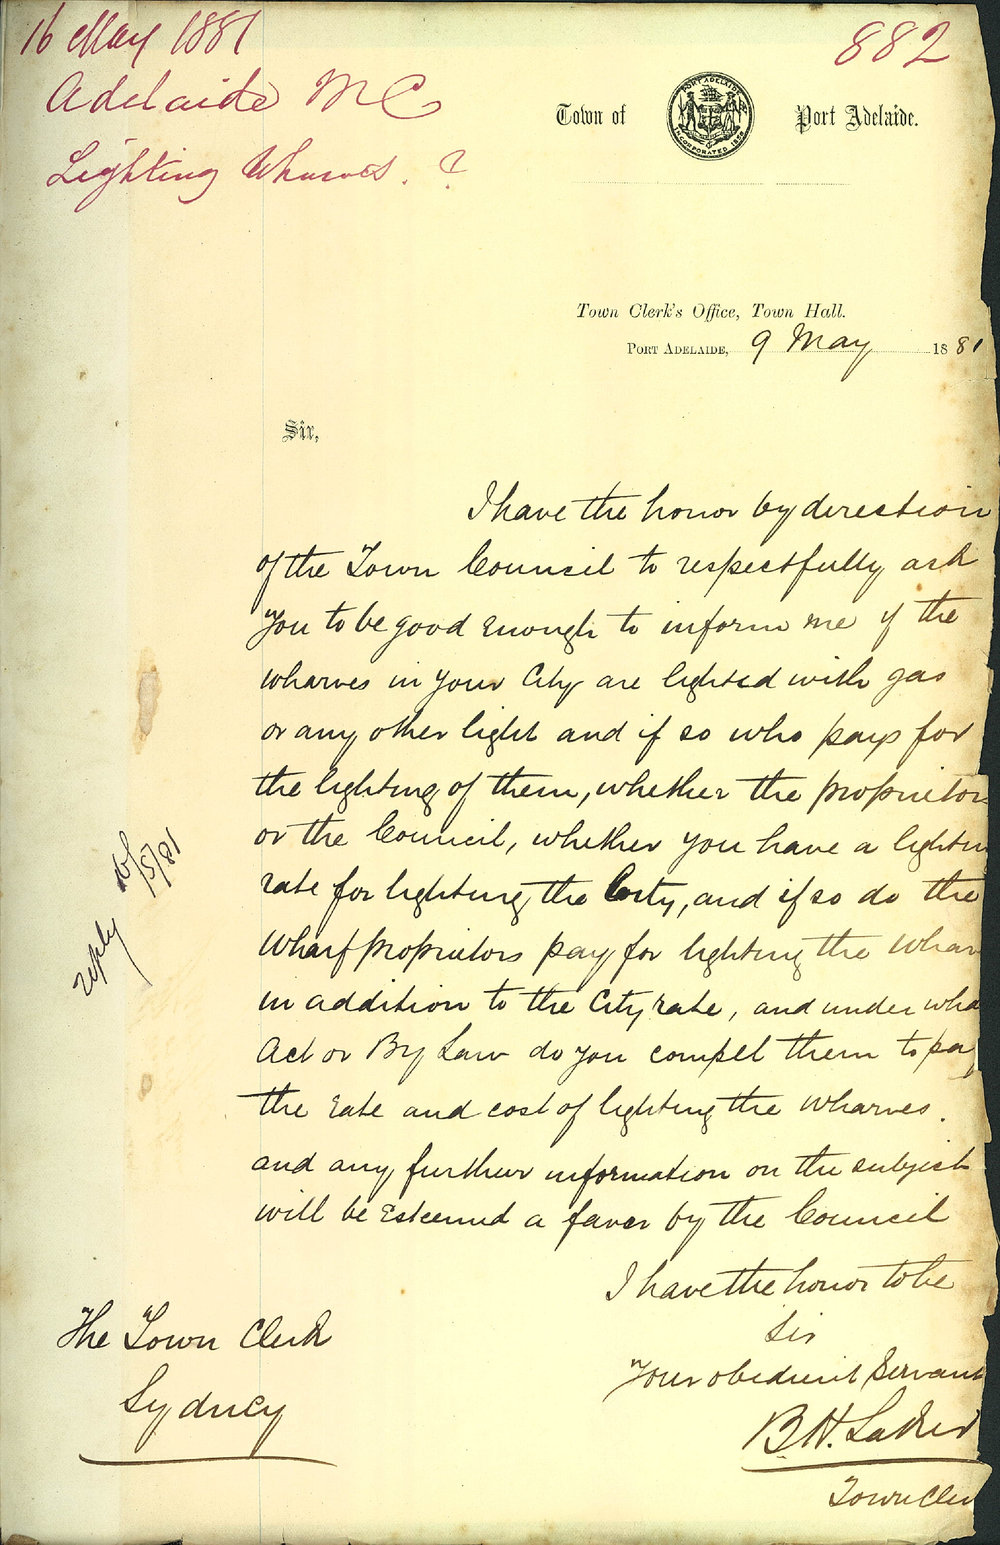 16 May 1881
882
Adelaide M C
Lighting Wharves. ?
Town of Port Adelaide.
PORT ADELAIDE
INCORPORATED 1856
Town Clerk's Office, Town Hall.
Port Adelaide, 9 May 1881
Sir,
I have the honor by direction
of the Town Council to respectfully ask
you to be good enough to inform me if the
wharves in your City are lighted with gas
or any other light and if so who pays for
the lighting of them, whether the proprietors
or the Council, whether you have a lightin
rate for lighting the City, and if so do the
Wharf proprietors pay for lighting the Whar
in addition to the City rate, and under wha
Act or By Law do you compel them to pay
the rate and cost of lighting the wharves.
and any further information on the subject
will be esteemed a favor by the Council
I have the honor to be
Sir
Your obedient Servant
B. H. Laker
Town Cler
The Town Clerk
Sydney
reply 16/5/81